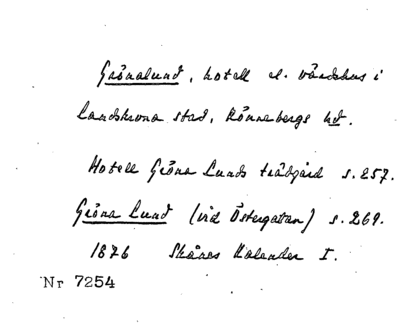 Grönalund, hotell el. värdshus i
Landskrona stad, Rönnebergs hd.
Hotell Gröna Lunds trädgård s. 257.
Gröna Lund (vid Östergatan) s. 269.
1876 Skånes Kalender I.
Nr 7254